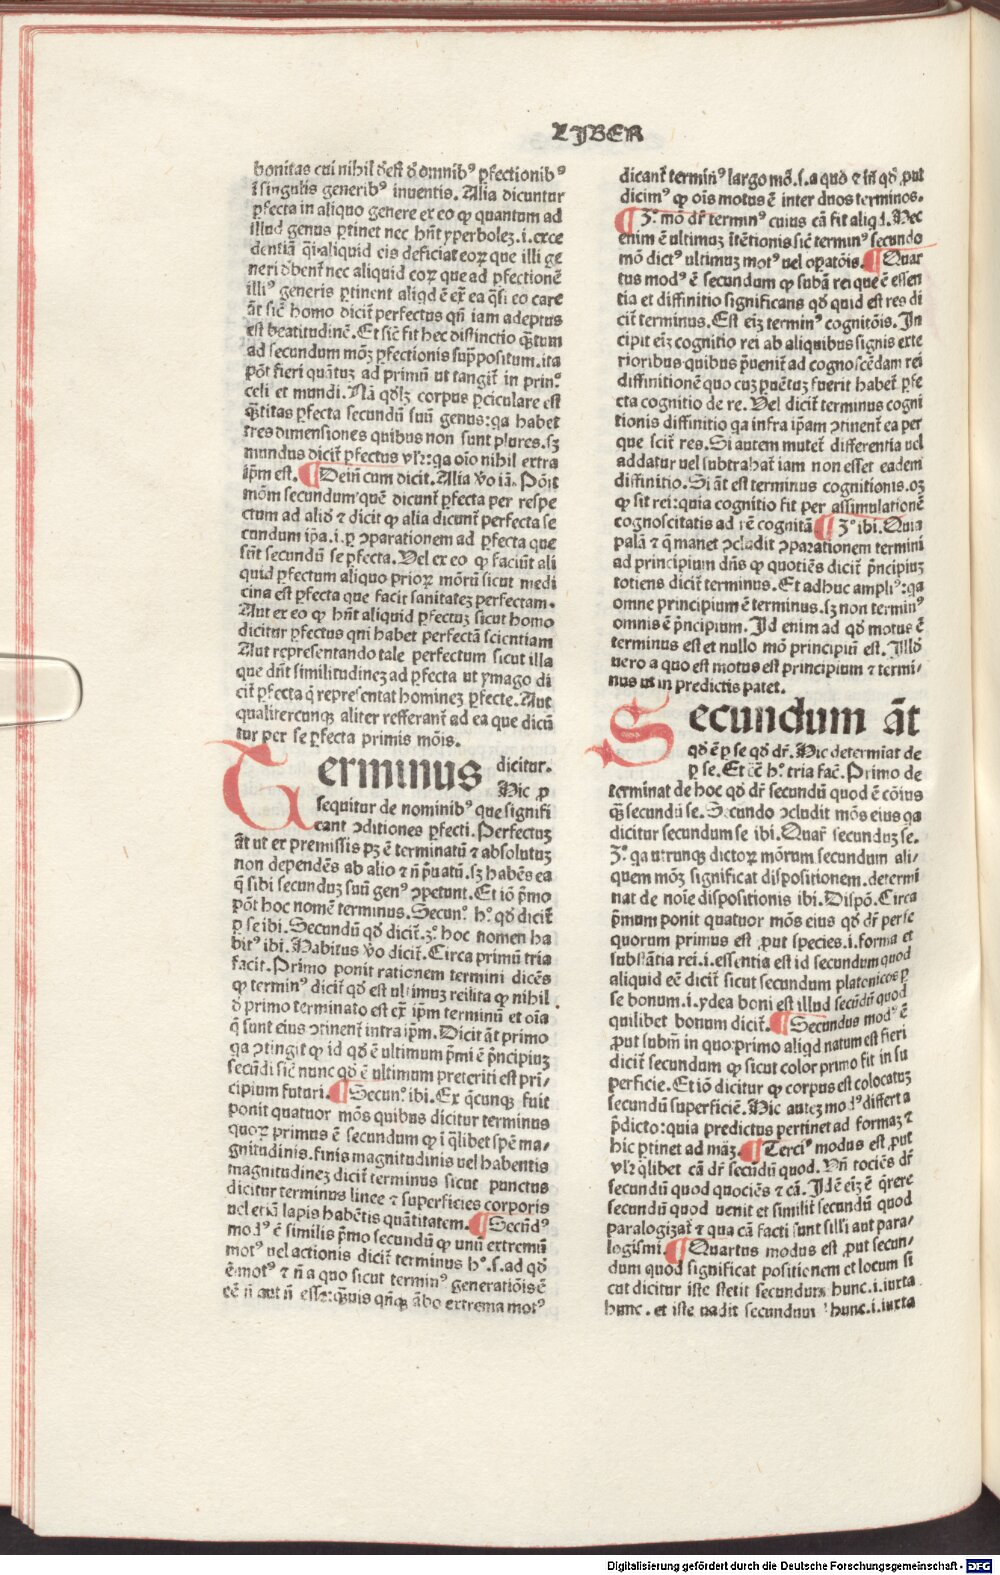 LIBER
bonitas cui nihil deſt de omnibꝰ ꝑfectionibꝰ
ī ſingulis generibꝰ inuentis. Alia dicuntur
ꝑfecta in aliquo genere ex eo ꝙ quantum ad
illud genus ꝑtinet nec hn̄t yperbolez.i.exce
dentiā
neri
illiꝰ generis ꝑtinent aliqd ē
āt ſic̄ homo dicit̄ perfectus qn̄ iam adeptus
eſt beatitudinē. Et ſic̄ fit hec diſtinctio
ad secundum moꝫ ꝑfectionis ſuppoſitum.ita
pōt fieri quātuꝫ ad primū ut tangit̄ in prin.
celi et mundi. Nā corpus ꝑticulare eſt
ꝑfecta secundū ſuū genus: habet
tres dimenſiones quibus non ſunt plures.ſꝫ
mundus dicit̄ ꝑfectus vlr̄: nihil extra
ip̄m eſt. ¶ Dein̄ cum dicit. Alia v̄o iā. Pōit
mōm secundum quē dicunt̄ ꝑfecta per reſpe
ctum ad aliud ⁊ dicit ꝙ alia dicunt̄ perfecta ſe
cundum ip̄a.i.ꝑ ↄparationem ad ꝑfecta que
ſūt secundū ſe ꝑfecta. Vel ex eo ꝙ faciūt ali
quid ꝑfectum aliquo prioꝝ mōrū ſicut medi
cina eſt ꝑfecta que facit ſanitateꝫ perfectam.
Aut ex eo ꝙ hn̄t aliquid ꝑfectuꝫ ſicut homo
dicitur ꝑfectus qui habet perfectā ſcientiam
Aut repreſentando tale perfectum ſicut illa
que dn̄t ſimilitudineꝫ ad ꝑfecta ut ymago di
cit̄ ꝑfecta q̄ repreſentat homineꝫ ꝑfecte. Aut
qualitercunqꝫ aliter refferant̄ ad ea que dicū
tur per ſe ꝑfecta primis mōis.
Terminus dicitur.
Hic ꝓ
ſequitur de nominibꝰ que ſignifi
cant ↄditiones ꝑfecti. Perfectuꝫ
āt ut ex premiſſis pꝫ ē terminatū ⁊ abſolutuꝫ
non dependēs ab alio ⁊ n̄ p̄uatū.ſꝫ habēs ea
q̄ ſibi secunduꝫ ſuū genꝰ ↄpetunt. Et iō p̄mo
pōt hoc nomē terminus. Secun.º h.º qd̄ dicit̄
ꝑ ſe ibi. Secundū qd̄ dicit̄.3.º hoc nomen ha
bitꝰ ibi. Habitus v̄o dicit̄. Circa primū tria
facit. Primo ponit rationem termini dicēs
ꝙ terminꝰ dicit̄ qd̄ eſt ultimuꝫ reilita ꝙ nihil
d̄ primo terminato eſt ex̄ ip̄m terminū et oīa
q̄ ſunt eius ↄtinent̄ intra ip̄m. Dicit āt primo
ↄtingit ꝙ id qd̄ ē ultimum p̄mi ē p̄ncipiuꝫ
ſecūdi ſic̄ nunc qd̄ ē ultimum preteriti eſt pri⸗
cipium futuri. ¶ Secun.º ibi. Ex q̄cunqꝫ fuit
ponit quatuor mōs quibus dicitur terminus
quoꝝ primus ē secundum ꝙ ī q̄libet ſpē ma⸗
gnitudinis.finis magnitudinis uel habentis
magnitudineꝫ dicit̄ terminus ſicut punctus
dicitur terminus linee ⁊ ſuperficies corporis
uel etiā lapis habētis quātitatem. ¶ Secūdꝰ
moꝰ ē ſimilis p̄mo secundū ꝙ unū extremū
motꝰ uel actionis dicit̄ terminus h.º.ſ.ad qd̄
ē motꝰ ⁊ n̄ a quo ſicut terminꝰ generatiōis ē
eē n̄ aut n̄ eſſe: q̄uis qn̄qꝫ ābo extrema motꝰ
dicant̄ terminꝰ largo mō.ſ.a quo ⁊ in qd̄.ꝓut
dicimꝰ ꝙ oīs motus ē inter duos terminos.
¶ 3.º mō dr̄ terminꝰ cuius cā fit aliqd. Hec
enim ē ultimuꝫ ītētionis ſic̄ terminꝰ ſecundo
mō dictꝰ ultimuꝫ motꝰ uel oꝑatōis. ¶ Quar
tus modꝰ ē secundum ꝙ ſubā rei que ē eſſen
tia et diffinitio ſignificans qd̄ quid eſt res di
cit̄ terminus. Eſt eiꝫ terminꝰ cognitōis. In
cipit eiꝫ cognitio rei ab aliquibus ſignis exte
rioribus quibus ꝑuenit̄ ad cognoſcēdam rei
diffinitionē quo cuꝫ ꝑuētuꝫ fuerit habet̄ ꝑfe
cta cognitio de re. Vel dicit̄ terminus cogni
tionis diffinitio infra ip̄am ↄtinent̄ ea per
que ſcit̄ res. Si autem mutet̄ differentia uel
addatur uel ſubtrahat̄ iam non eſſet eadem
diffinitio. Si āt eſt terminus cognitionis.oꝫ
ꝙ ſit rei: quia cognitio fit per aſſimulationē
cognoſcitatis ad rē cognitā. ¶ 3.º ibi. Quia
palā ⁊ q̄ manet ↄcludit ↄparationem termini
ad principium dn̄s ꝙ quotiēs dicit̄ p̄ncipiuꝫ
totiens dicit̄ terminus. Et adhuc ampliꝰ:
omne principium ē terminus.ſꝫ non terminꝰ
omnis ē p̄ncipium. Id enim ad qd̄ motus ē
terminus eſt et nullo mō principiū eſt. Illd̄
uero a quo eſt motus eſt principium ⁊ termi⸗
nus ut in predictis patet.
Secundum āt
qd̄ ē ꝑ ſe qd̄ dr̄. Hic determiat de
ꝑ ſe. Et h.º tria fac̄. Primo de
terminat de hoc qd̄ dr̄ secundū quod ē cōius
q̄ꝫ secundū ſe. Secundo ↄcludit mōs eius
dicitur secundum ſe ibi. Quar̄ secunduꝫ ſe.
3.º utrunqꝫ dictoꝝ mōrum secundum ali⸗
quem moꝫ ſignificat diſpoſitionem.determi
nat de noīe diſpoſitionis ibi. Diſpō. Circa
p̄mum ponit quatuor mōs eius qd̄ dr̄ per ſe
quorum primus eſt ꝓut ſpecies.i.forma et
ſubſtātia rei.i.eſſentia eſt id secundum quod
aliquid eē dicit̄ ſicut secundum platonicos ꝑ
ſe bonum.i.ydea boni eſt illud ſecūdū quod
quilibet bonum dicit̄. ¶ Secundus modꝰ ē
ꝓut ſubm̄ in quo primo aliqd natum eſt fieri
dicit̄ secundum ꝙ ſicut color primo fit in ſu
perficie. Et iō dicitur ꝙ corpus eſt colocatuꝫ
secundū ſuperficiē. Hic auteꝫ modꝰ differt a
p̄dicto: quia predictus pertinet ad formaꝫ ⁊
hic ꝑtinet ad māꝫ. ¶ Terciꝰ modus eſt ꝓut
vlr̄ q̄libet cā dr̄ secūdū quod. Vn̄ tociēs dr̄
secundū quod quociēs ⁊ cā. Idē eiꝫ ē q̄rere
secundū quod uenit et ſimilit̄ secundū quod
paralogizat̄ ⁊ qua cā facti ſunt ſilli aut para⸗
logiſmi. ¶ Quartus modus eſt ꝓut ſecun⸗
dum quod ſignificat poſitionem et locum ſi
cut dicitur iſte ſtetit secundum hunc.i.iuxta
hunc. et iſte uadit secundum hunc.i.iuxta
Digitalisierung gefördert durch die Deutsche Forschungsgemeinschaft - DFG